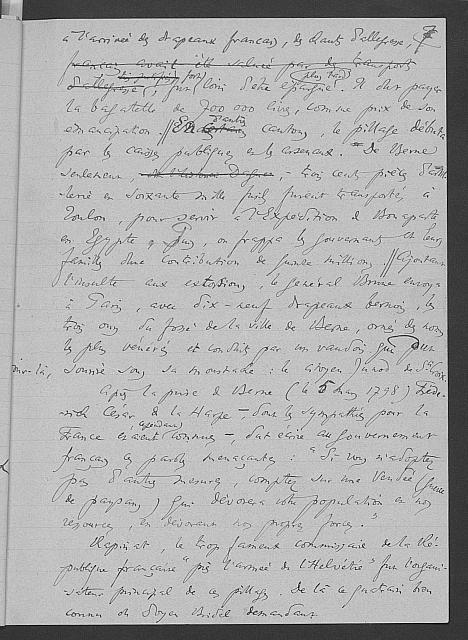 à l'arrivée des drapeaux français, des chants d'allégresse,
français avait été salué par des transports
d'allégresse, fut loin d'être épargné. Il dut payer
la bagatelle de 700 000 livres, comme prix de son
émancipation. // En d'autres cantons, le pillage débuta
par les caisses publiques et les arsenaux. De Berne
seulement, trois cents pièces d'artil-
lerie et soixante mille fusils furent transportés à
Toulon, pour servir à l'Expédition de Bonaparte
en Egypte. Puis, on frappa les gouvernants et leurs
familles d'une contribution de quinze millions. // Ajoutant
l'insulte aux extorsions, le général Brune envoya
à Paris, avec dix-neuf drapeaux bernois, les
trois ours du fossé de la ville de Berne, ornés des noms
les plus vénérés et conduits par un vaudois qui
sourire sous sa moustache : le citoyen Junod de Ste Croix.
Après la prise de Berne (le 5 mars 1798) Frédé-
rich César de la Harpe –, dont les sympathies pour la
France étaient cependant connues –, dut écrire au gouvernement
français ces paroles menaçantes : "Si vous n'adoptez
pas d'autres mesures, comptez sur une Vendée (guerre
de paysans) qui dévorera votre population et nos
ressources, en dévorant nos propres forces."
Rapinat, le trop fameux commissaire de la Ré-
publique française "près l'armée de l'Helvétie" fut l'organi-
sateur principal de ces pillages. De là ce quatrain bien
connu du Doyen Bridel demandant